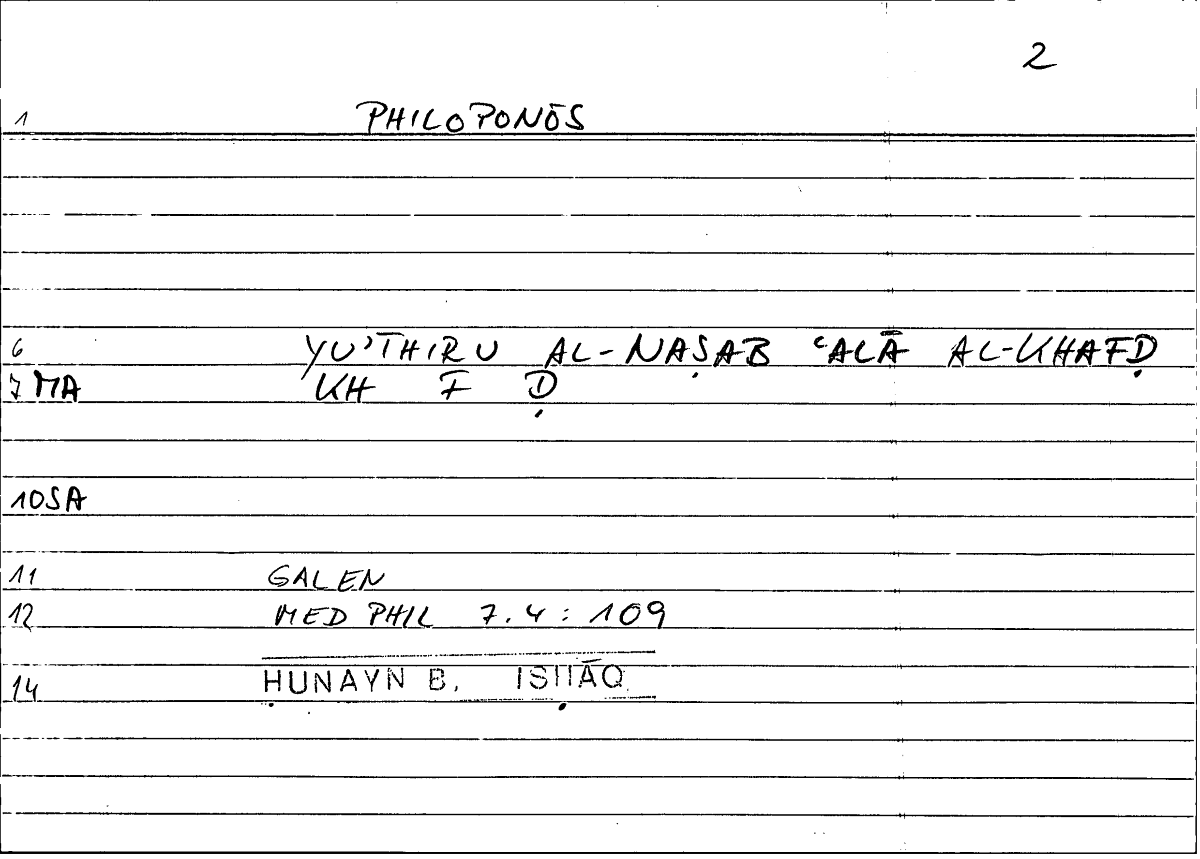 2
1 PHILOPONŌS
6 YU'THIRU AL-NAṢAB ʿALĀ AL-KHAFḌ
7 MA KH F Ḍ
10 SA
11 GALEN
12 MED PHIL 7.4 : 109
14 ḤUNAYN B. ISḤĀQ